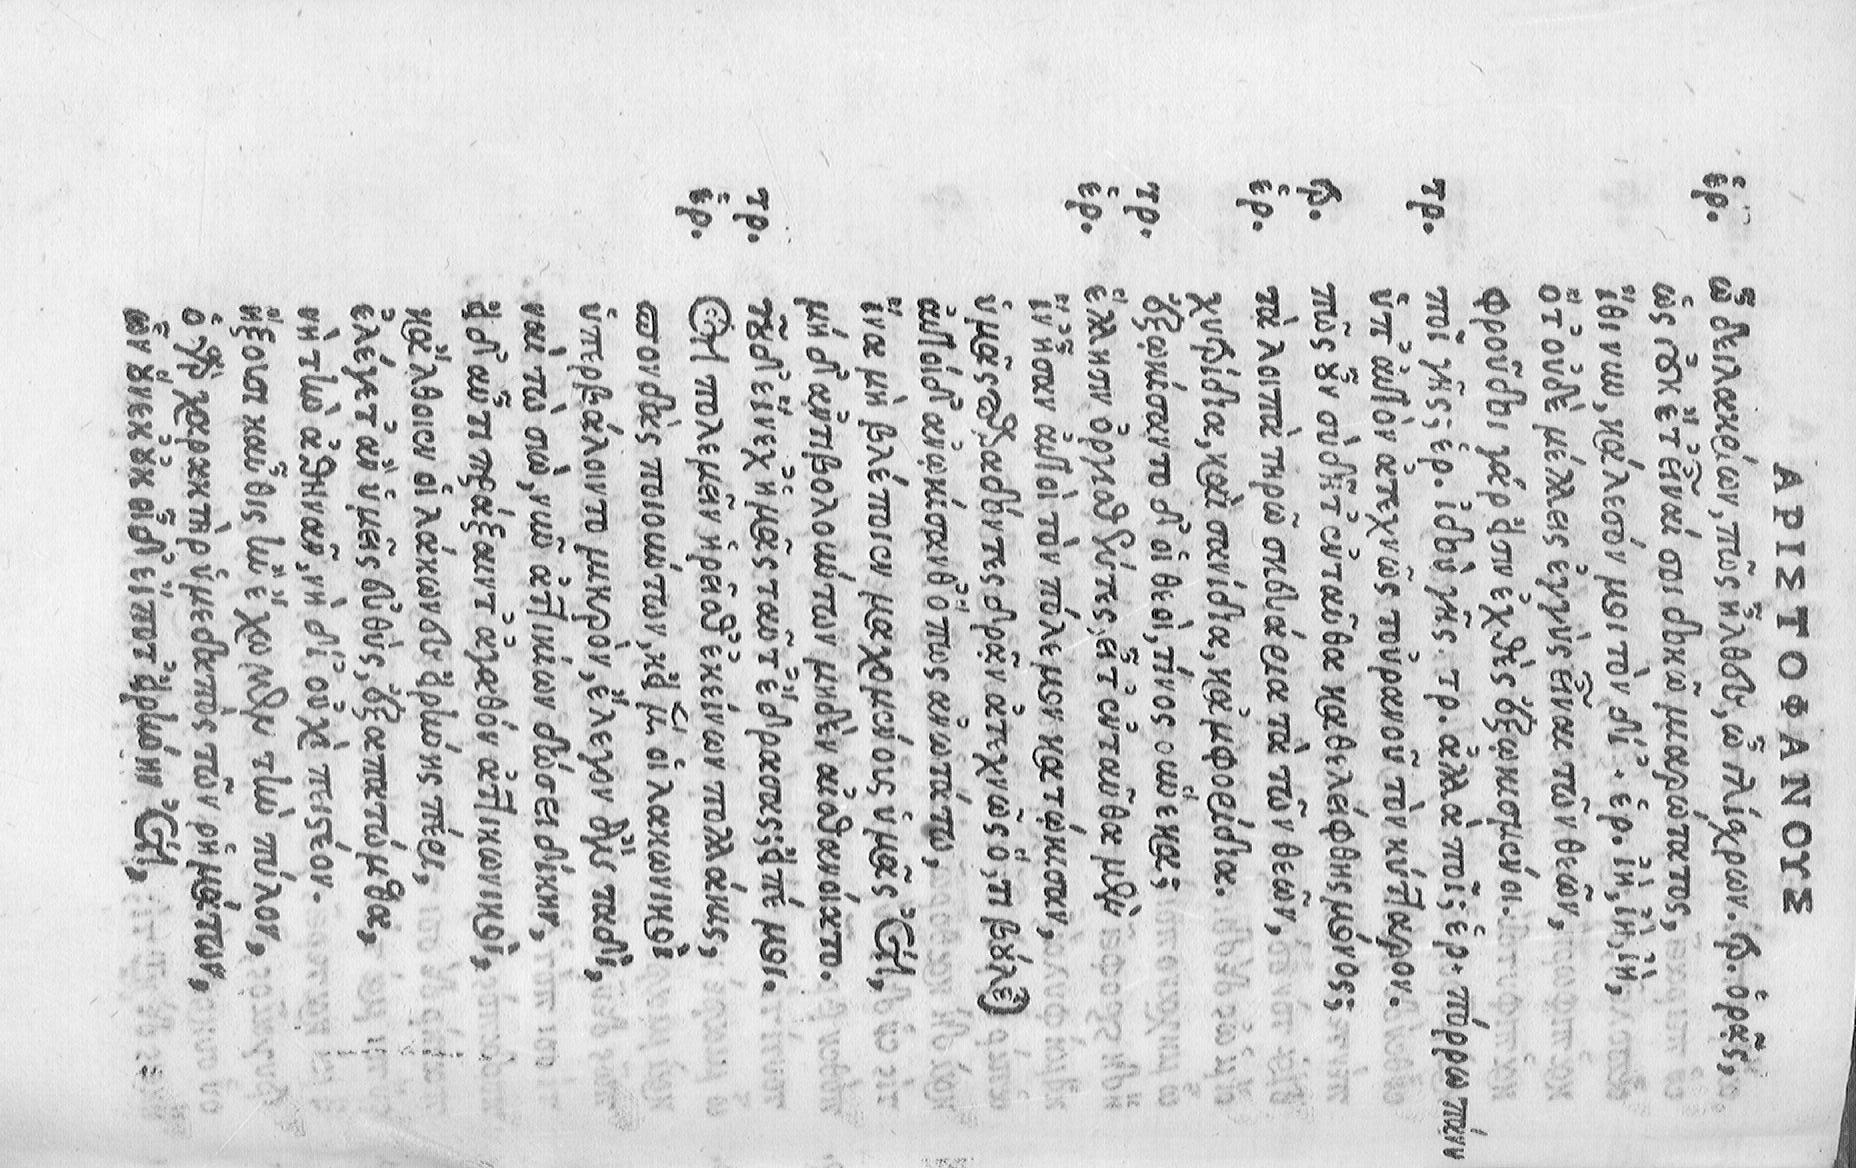 ΑΡΙΣΤΟΦΑΝΟΥΣ
ἑρ. ὦ δειλακρίων, πῶς ἦλθες, ὦ γλίσχρων. τρ. ὁρᾷς,
ὡς οὐκ ἔτ' εἶναί σοι δοκῶ μιαρώτατος,
ἴθι νῦν, κάλεσόν μοι τὸν δί'. ἑρ. ἰὴ, ἰὴ, ἰὴ,
ὅτ' οὐδὲ μέλλεις ἐγγὺς εἶναι τῶν θεῶν,
φροῦδοι γάρ εἰσιν ἐχθὲς ἐξῳκισμένοι.
τρ. ποῖ γῆς; ἑρ. ἰδοὺ γῆς. τρ. ἀλλὰ ποῖ; ἑρ. πόρρω πάνυ
ὑπ' αὐτὸν ἀτεχνῶς τοὐρανοῦ τὸν κύτταρον.
τρ. πῶς οὖν σὺ δῆτ' ἐνταῦθα κατελείφθης μόνος;
ἑρ. τὰ λοιπὰ τηρῶ σκευάρια τὰ τῶν θεῶν,
χυτρίδια, καὶ σανίδια, κἀμφορείδια.
τρ. ἐξῳκίσαντο δ' οἱ θεοὶ, τίνος οὕνεκα;
ἑρ. ἕλλησιν ὀργισθέντες, εἶτ' ἐνταῦθα μὲν
ἵν' ἦσαν αὐτοὶ τὸν πόλεμον κατῴκισαν,
ὑμᾶς παραδόντες δρᾶν ἀτεχνῶς ὅ, τι βούλεται
αὐτοὶ δ' ἀνῳκίσανθ' ὅπως ἀνωτάτω,
ἵνα μὴ βλέποιεν μαχομένους ὑμᾶς ἔτι,
μήδ' ἀντιβολούντων μηδὲν αἰσθανοίατο.
τρ. τοῦ δ' εἵνεχ' ἡμᾶς ταῦτ' ἔδρασαν; εἰπέ μοι.
ἑρ. ὁτιὴ πολεμεῖν ᾑρεῖσθ' ἐκείνων πολλάκις,
σπονδὰς ποιούντων, κεἰ μὲν οἱ λακωνικοὶ
ὑπερβάλοιντο μικρὸν, ἔλεγον ἂν ταδὶ,
ναὶ τὼ σιὼ, νῦν ἀττικίων δώσει δίκην,
εἰ δ' αὖ τι πράξαιντ' ἀγαθὸν ἀττικωνικοὶ,
κᾄλθοιεν οἱ λάκωνες εἰρήνης πέρι,
ἐλέγετ' ἂν ὑμεῖς εὐθὺς, ἐξαπατώμεθα,
νὴ τὴν ἀθηνᾶν, νὴ δί' οὐχὶ πειστέον.
ἥξουσι καὖθις ἢν ἔχωμεν τὴν πύλον,
ὁ γοῦν χαρακτὴρ ἡμεδαπὸς τῶν ῥημάτων,
ὧν οὕνεκ' οὐκ οἶδ' εἴ ποτ' εἰρήνην ἔτι,